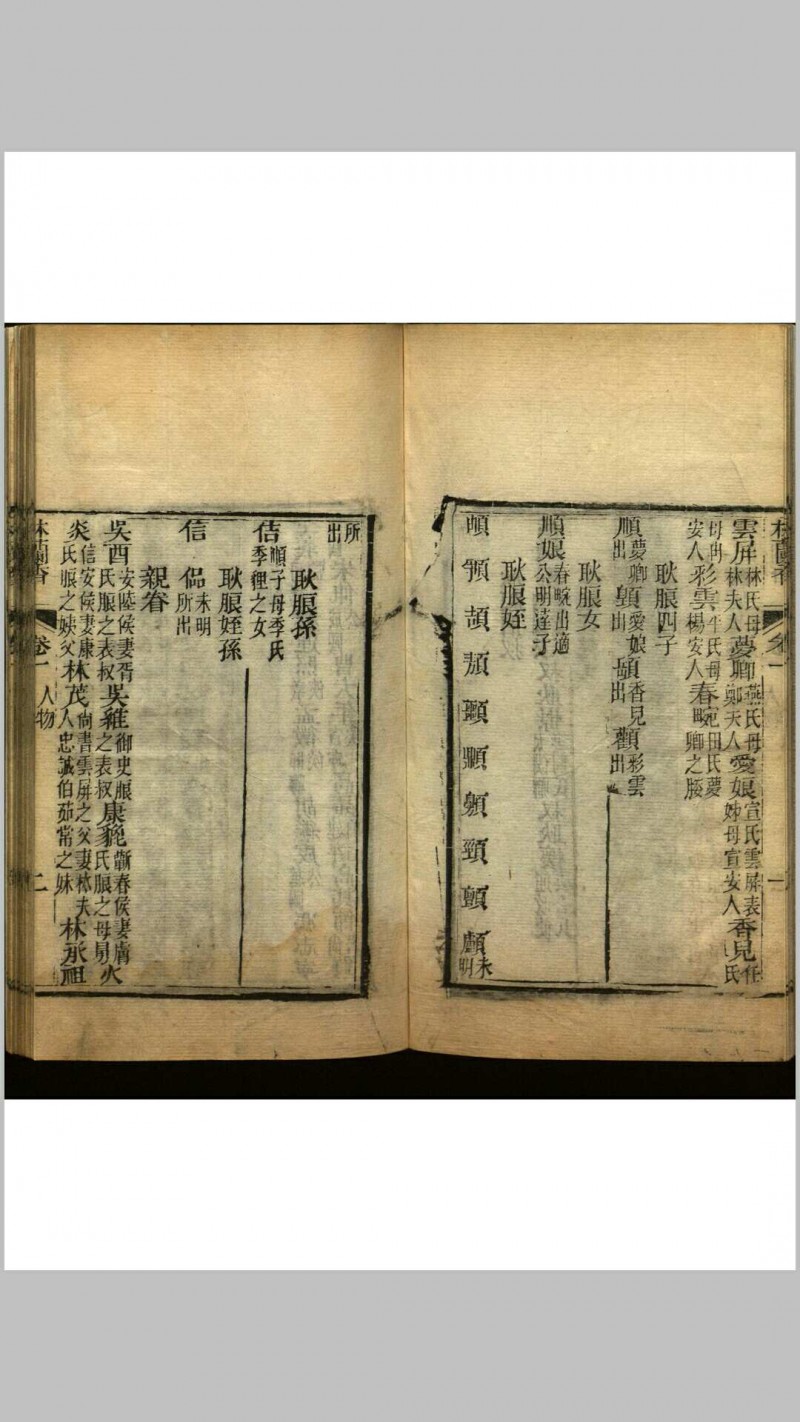 雲屏林氏母林夫人夢卿燕氏母鄭夫人愛娘宣氏雲屏表姊母宣安人香兒任氏
母冉安人彩雲平氏母楊安人春畹田氏夢卿之媵
耿朖四子
順夢卿出 愛娘出 香兒出 彩雲出
耿朖女
順娘春畹出適公明達子
耿朖姪
頡 頭 未明
所出
耿朖孫
佶順子母季氏季狸之女
耿朖姪孫
信 侣未明所出
親眷
吳酉安陸侯妻胥氏朖之表叔吳雄御史朖之表叔康蘄春侯妻膚氏朖之母舅火
炎信安侯妻康氏朖之妹父林茂尚書雲屏之父妻林夫人忠誠伯茹常之妹林承祖
林蘭香 卷一 人物 二